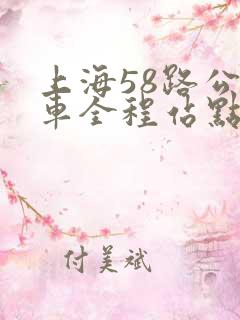 上海58路公
車全程佔點
付美斌